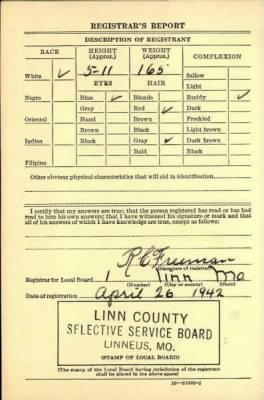 REGISTRAR'S REPORT
DESCRIPTION OF REGISTRANT
RACE HEIGHT (Approx.) WEIGHT (Approx.) COMPLEXION
White ✓ 5-11 165 Sallow
EYES HAIR Light
Negro Blue ✓ Blonde Ruddy ✓
Gray Red ✓ Dark
Oriental Hazel Brown Freckled
Brown Black Light brown
Indian Black Gray ✓ Dark brown
Bald Black
Filipino
Other obvious physical characteristics that will aid in identification
I certify that my answers are true; that the person registered has read or has had
read to him his own answers; that I have witnessed his signature or mark and that
all of his answers of which I have knowledge are true, except as follows:
R C Freeman
(Signature of registrar)
Registrar for Local Board 1 Linn Mo
(Number) (City or county) (State)
Date of registration April 26 1942
LINN COUNTY
SELECTIVE SERVICE BOARD
LINNEUS, MO.
(STAMP OF LOCAL BOARD)
(The stamp of the Local Board having jurisdiction of the registrant
shall be placed in the above space)